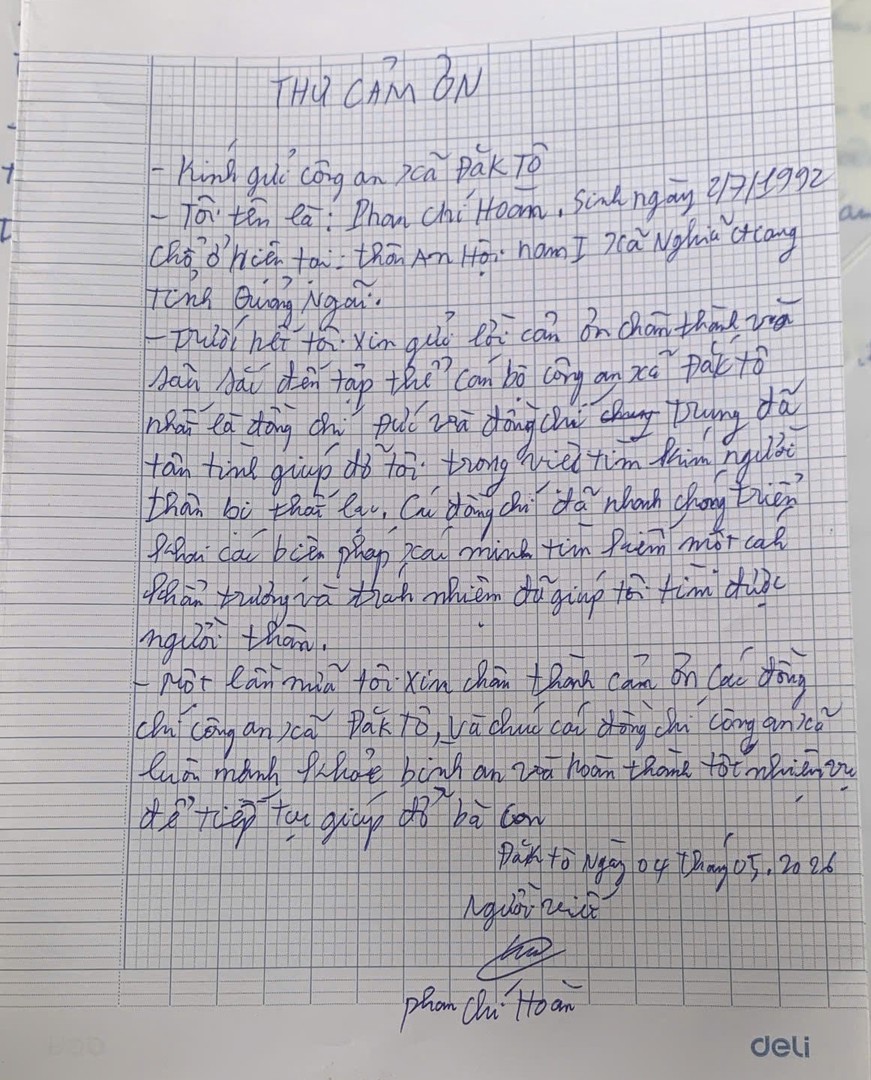 THƯ CẢM ƠN
- Kính gửi công an xã Đăk Tô
- Tôi tên là: Phan Chí Hoàn. Sinh ngày 2/7/1992
Chỗ ở hiện tại: thôn An Hội nam I xã Nghĩa Giang
Tỉnh Quảng Ngãi.
- Trước hết tôi xin gửi lời cảm ơn chân thành và
sâu sắc đến tập thể cán bộ công an xã Đắk Tô
nhất là đồng chí Đức và đồng chí chung Trung đã
tận tình giúp đỡ tôi trong việc tìm kiếm người
thân bị thất lạc. Các đồng chí đã nhanh chóng triển
khai các biện pháp xác minh tìm kiếm một cách
khẩn trương và trách nhiệm đã giúp tôi tìm được
người thân.
- Một lần nữa tôi xin chân thành cảm ơn các đồng
chí công an xã Đăk Tô, và chúc các đồng chí công an xã
luôn mạnh khỏe bình an và hoàn thành tốt nhiệm vụ
để tiếp tục giúp đỡ bà con
Đăk tô Ngày 04 tháng 05. 2026
Người viết
Phan Chí Hoàn
deli